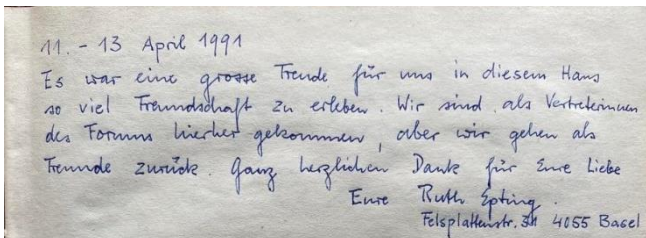 11. - 13 April 1991
Es war eine grosse Freude für uns in diesem Haus
so viel Freundschaft zu erleben. Wir sind als Vertreterinnen
des Forums hierher gekommen, aber wir gehen als
Freunde zurück. Ganz herzlichen Dank für Eure Liebe
Eure Ruth Epting.
Felsplattenstr. 4055 Basel